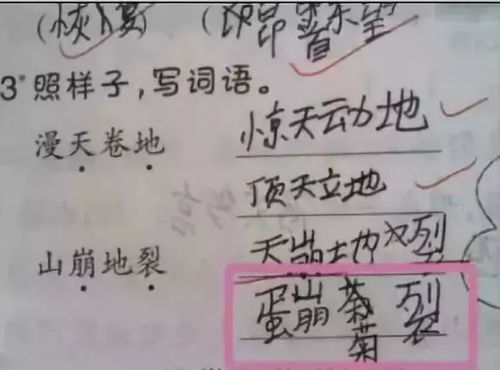 (恢复) (
3 照样子,写词语。
漫天卷地 惊天动地
顶天立地
山崩地裂 天崩地裂
蛋崩菊裂